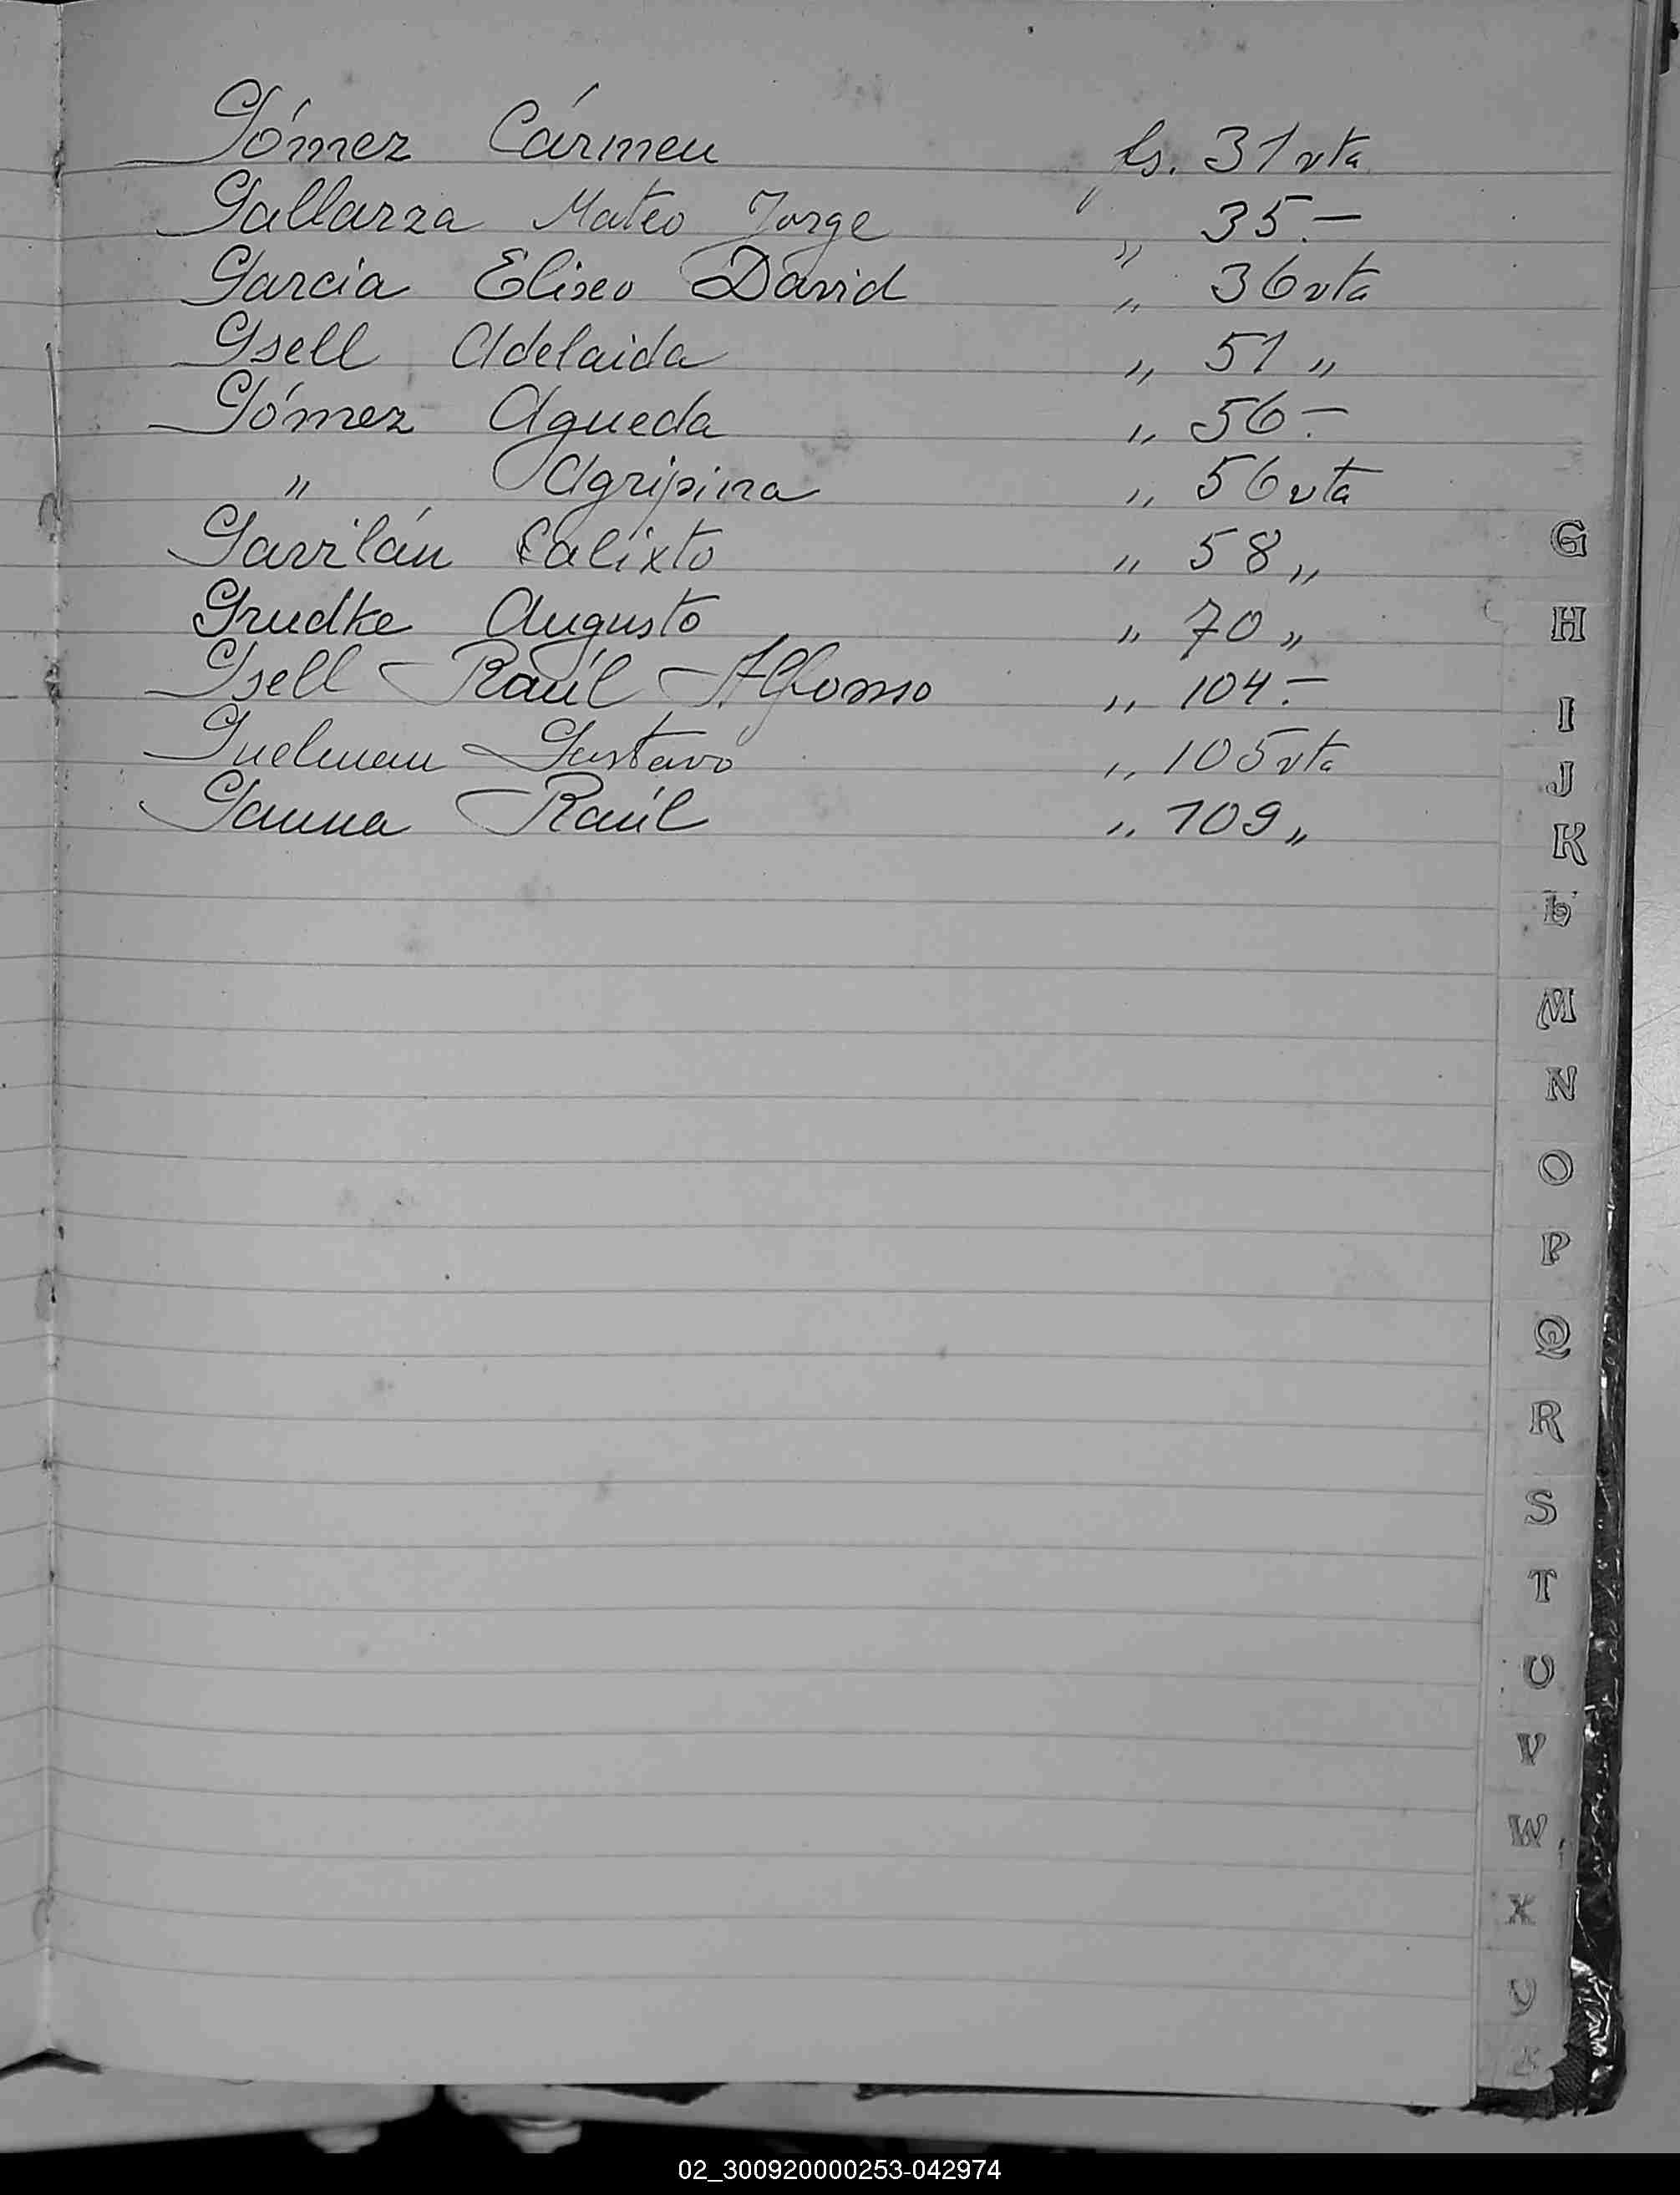 Gómez Cármen fs. 31 vta
Gallarza Mateo Jorge „ 35.—
Garcia Eliseo David „ 36 vta
Gsell Adelaida „ 51 „
Gómez Agueda „ 56.—
„ Agripina „ 56 vta
Gavilán Calixto „ 58 „
Grudke Augusto „ 70 „
Gsell Raúl Alfonso „ 104.—
Guelman Gustavo „ 105 vta
Gauna Raúl „ 109 „
G
H
I
J
K
L
M
N
O
P
Q
R
S
T
U
V
W
X
Y
Z
02_300920000253-042974